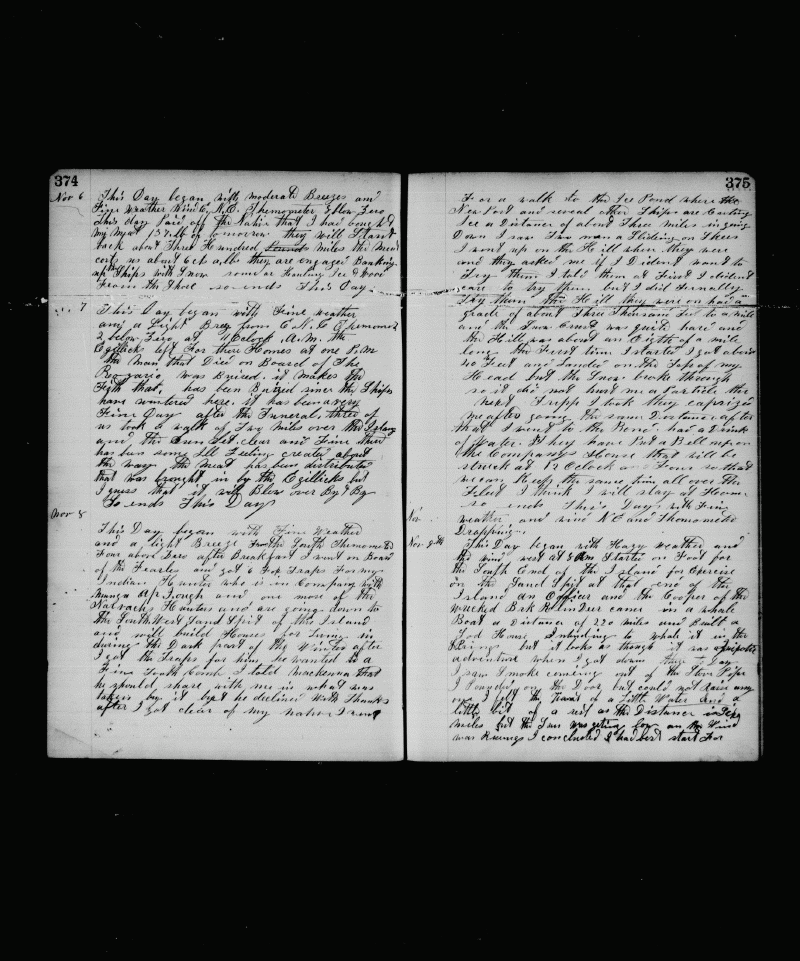 374
Nov 6 This Day began with moderate Breezes and
Fine weather Wind E.N.E. Thermometer below Zero
this day paid off the Native that I had bought
my meat they will Start
back about Three Hundred miles the Meat
they are engaged Banking
up Ships with Snow some are Hauling Ice & wood
From the Shore so ends This Day
7 This Day began with Fine weather
and a Light Breeze from E.N.E. Thermometer
2 below Zero at Oclock A.M. the
left For there Homes at one P.M
the man that Died on Board of The
was Buried it makes the
Fifth that has been Buried since the Ships
have wintered here. it has been a very
Fine Day after the Funeral, three of
us took a walk of Two Miles over the Island
and the Sun Set clear and Fine there
has been some Ill Feeling created about
the way the Meat has been distributed
that was brought in by the but
I guess that it will Blow over By & By
So ends This Day
Nov 8 This Day began with Fine Weather
and a light Breeze From the South Thermometer
Four above Zero after Breakfast I went on Board
of the and got 6 Fox Traps For my
Indian Hunter who is in Company with
and one more of the
Hunters and are going down to
the South West Sand Spit of this Island
and will build Houses for living in
during the Dark part of the Winter after
I got the Traps for him he wanted a
Fine Tooth Comb I told that
he should share with me in what was
taken by it but he declined with Thanks
after I got clear of my native I went
375
For a walk to the Ice Pond where the
and several other Ships are Carting
Ice a Distance of about Three Miles in going
Down I saw Two men a Sliding on Skees
I went up on the Hill where they were
and they asked me if I dident want to
Try them I told them at First I dident
care to try them but I did Finally
Try them the Hill they were on had a
grade of about Three Thousand Feet to a mile
and the Snow Crust was quite hard and
the Hill was about an Eigth of a mile
long the First time I started I got about
40 Feet and landed on the Top of my
Head but the Snow broke through
so it did not hurt me a Particle the
next Tripp I took they capsized
me after going the same Distance after
that I went to the and had a Drink
of Water. They have Put a Bell up on
the Companys House that will be
struck at 12 Oclock and Four so that
we can Keep the same time all over the
I think I will stay at Home
so ends This Day with Fine
Nov weather and wind N.E and Thermometer
Dropping.
Nov 9th This Day began with Hazy weather and
the wind west at 8 Am Started on Foot for
the South End of the Island for Exercise
on the Sand Spit at that end of the
Island an Officer and the Cooper of the
wrecked Bark Reindeer came in a whale
Boat a Distance of 220 miles and Built a
Sod House Intending to whale it in the
Spring but it looks as though it was a
adventure when I got down there To Day
I saw Smoke coming out of the Stove Pipe
I Pounded on the Door but could not raise any
one I felt the want of a little Water and a
little bit of a rest as the Distance is
miles but the Sun was geting low an the Wind
was I concluded I had best start For